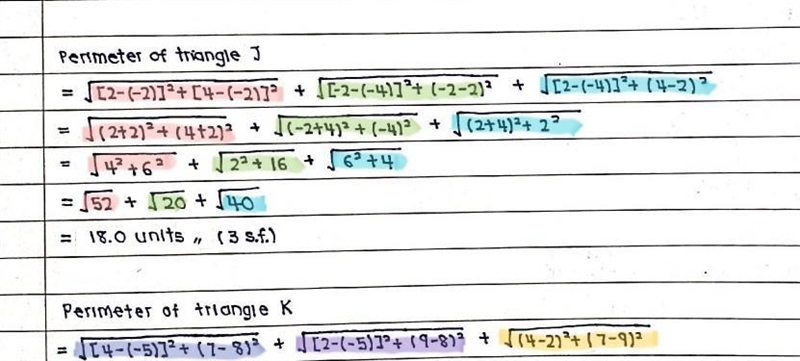 Perimeter of triangle J
= √[2-(-2)]²+[4-(-2)]² + √[-2-(-4)]²+(-2-2)² + √[2-(-4)]²+(4-2)²
= √(2+2)²+(4+2)² + √(-2+4)²+(-4)² + √(2+4)²+2²
= √4²+6² + √2²+16 + √6²+4
= √52 + √20 + √40
= 18.0 units,, (3 s.f.)
Perimeter of triangle K
= √[4-(-5)]²+(7-8)² + √[2-(-5)]²+(9-8)² + √(4-2)²+(7-9)²